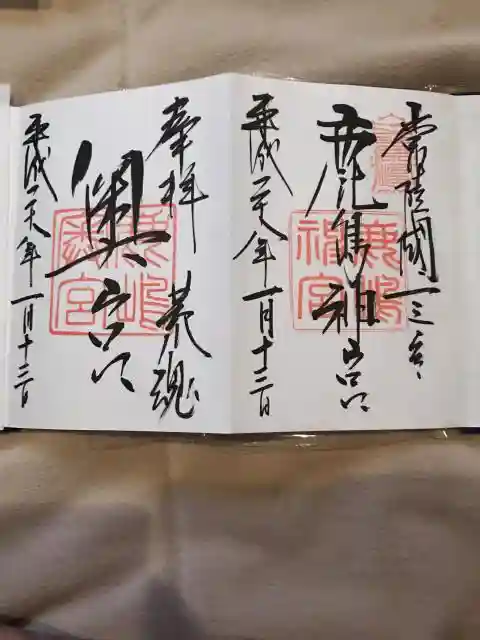 常陸國一之宮
鹿島神宮
鹿嶋神宮
平成二十八年一月十三日
奉拝 荒魂
奥宮
平成二十八年一月十三日